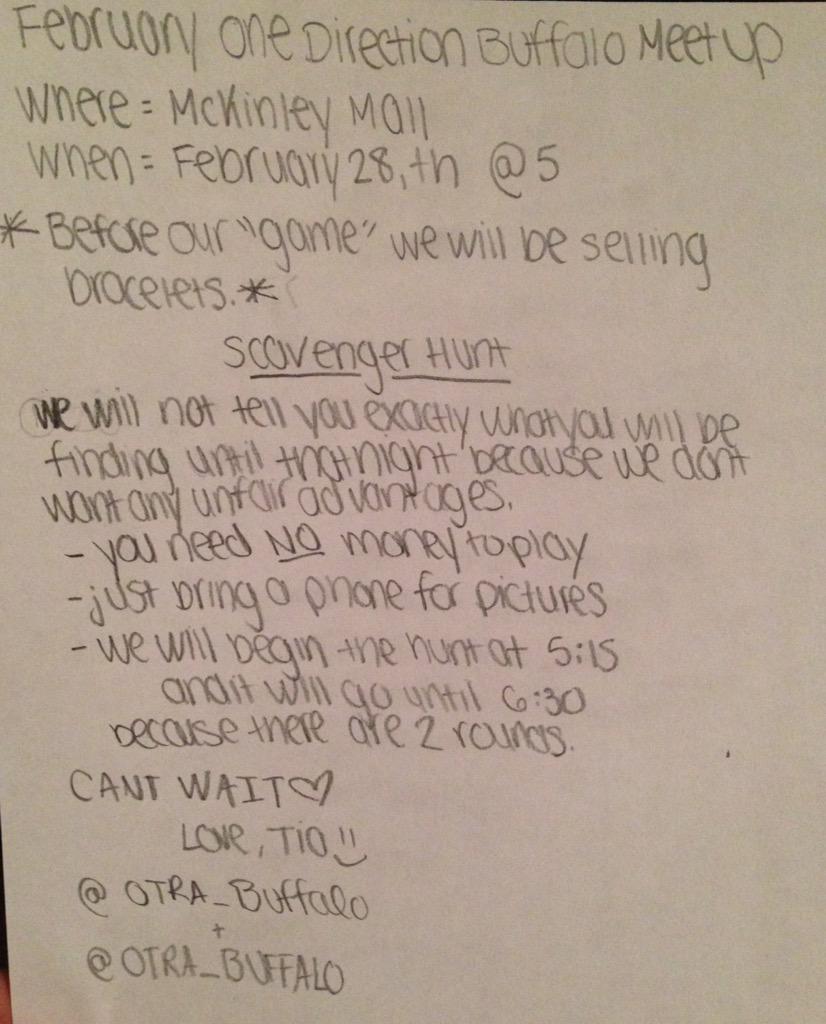 February One Direction Buffalo Meet up
Where = McKinley Mall
When = February 28,th @5
* Before our "game" we will be selling
bracelets.*
Scavenger Hunt
we will not tell you exactly what you will be
finding until that night because we dont
want any unfair advantages.
- you need NO money to play
- just bring a phone for pictures
- we will begin the hunt at 5:15
and it will go until 6:30
because there are 2 rounds.
CANT WAIT♡
LOVE, TIO!!
@ OTRA_Buffalo
+
@ OTRA_BUFFALO